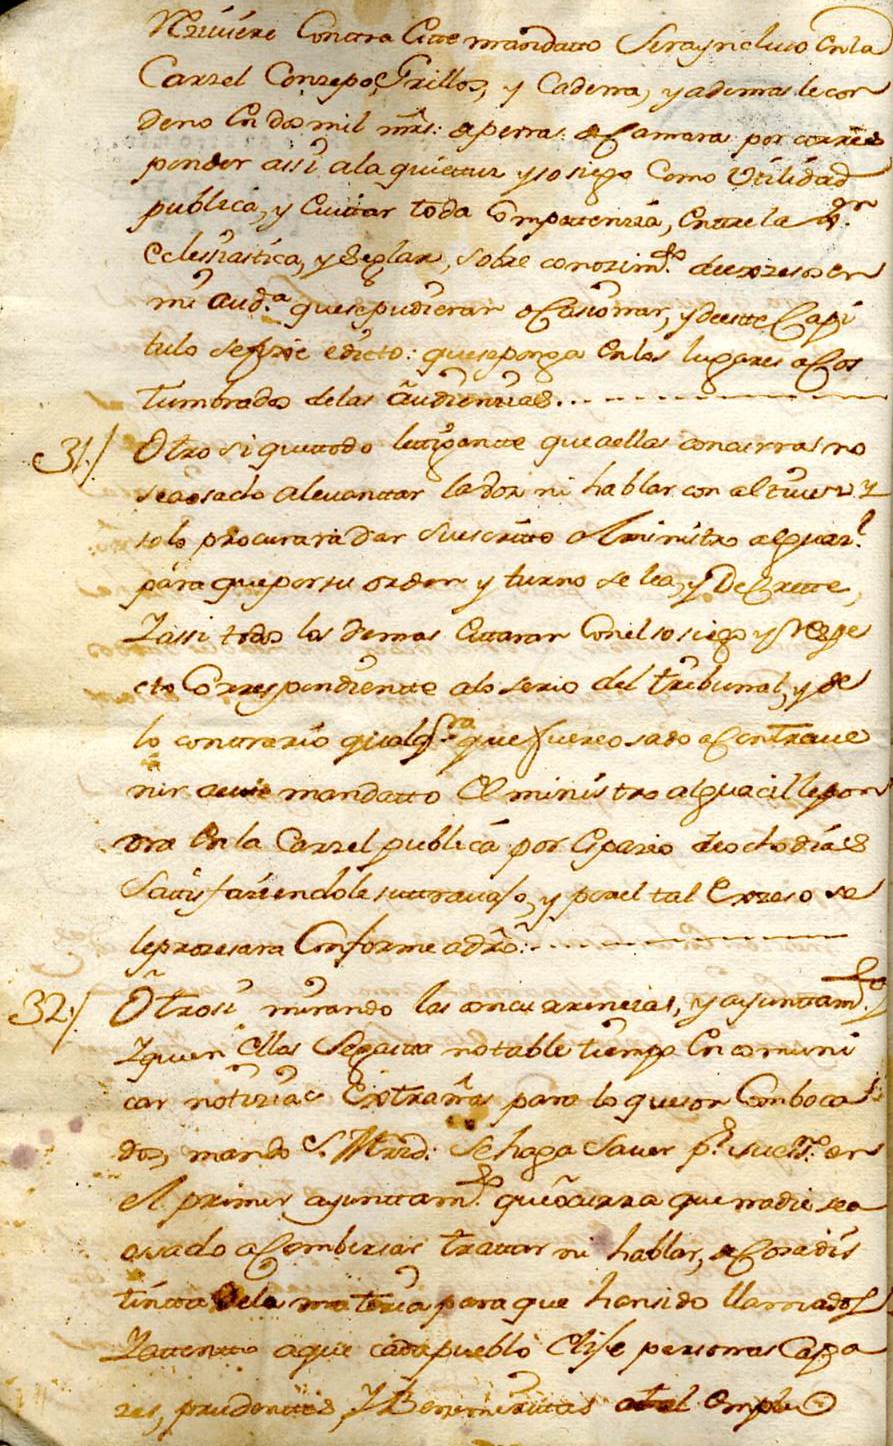 Contra este mandatto sera yncluso en la
Carzel Con zepo, Grillos, y Cadena, y ademas le con
deno en dos mil mrs. aperzas de Camara por corres
ponder assi a la quietud y sosiego Como Utilidad
publica, y Evitar toda Compettenzia, entre la
eclesiastica, y Seglar, sobre conozim.to de exzesos en
mi aud.a que se pudieran ocasionar, y de este Capi
tulo se fixe edicto: que se ponga en los lugares acos
tumbrados de las audienzias.
31./ Otro si que ttodo littigantte que a ellas concurra no
sea osado a levanttar la voz ni hablar con altivez y
solo procurara dar su escritto al ministro alguaz.l
para que por su orden y turno se lea, y Decrette,
Y assi todos los demas Estaran Con el sosiego y Respe
cto Correspondientte a lo serio del tribunal, y de
lo contrario qualq.ra que fuere osado a Contrave
nir a este mandatto el ministro alguacil le pon
dra en la Carzel publica por espazio de ocho dias
Sattisfaziendole su ttravajo, y por el tal Exzeso se
le prozesara Conforme a dro.
32./ Otrosi mirando las concurrencias, y ayuntam.to
Y que en ellas Se gasta notable tiempo En comuni
car notizias Extrañas para lo que son Comboca
dos, mando S. Mrd. se haga saver p.r su essno. en
el primer ayunttam.to que ocurra que nadie sea
osado a Combersar trattar ni hablar, de Cosa dis
tintta de la materia para que han sido llamados
Y attentto a que cada pueblo Elije personas Capa
zes, prudenttes, y Benemerittas al tal empleo